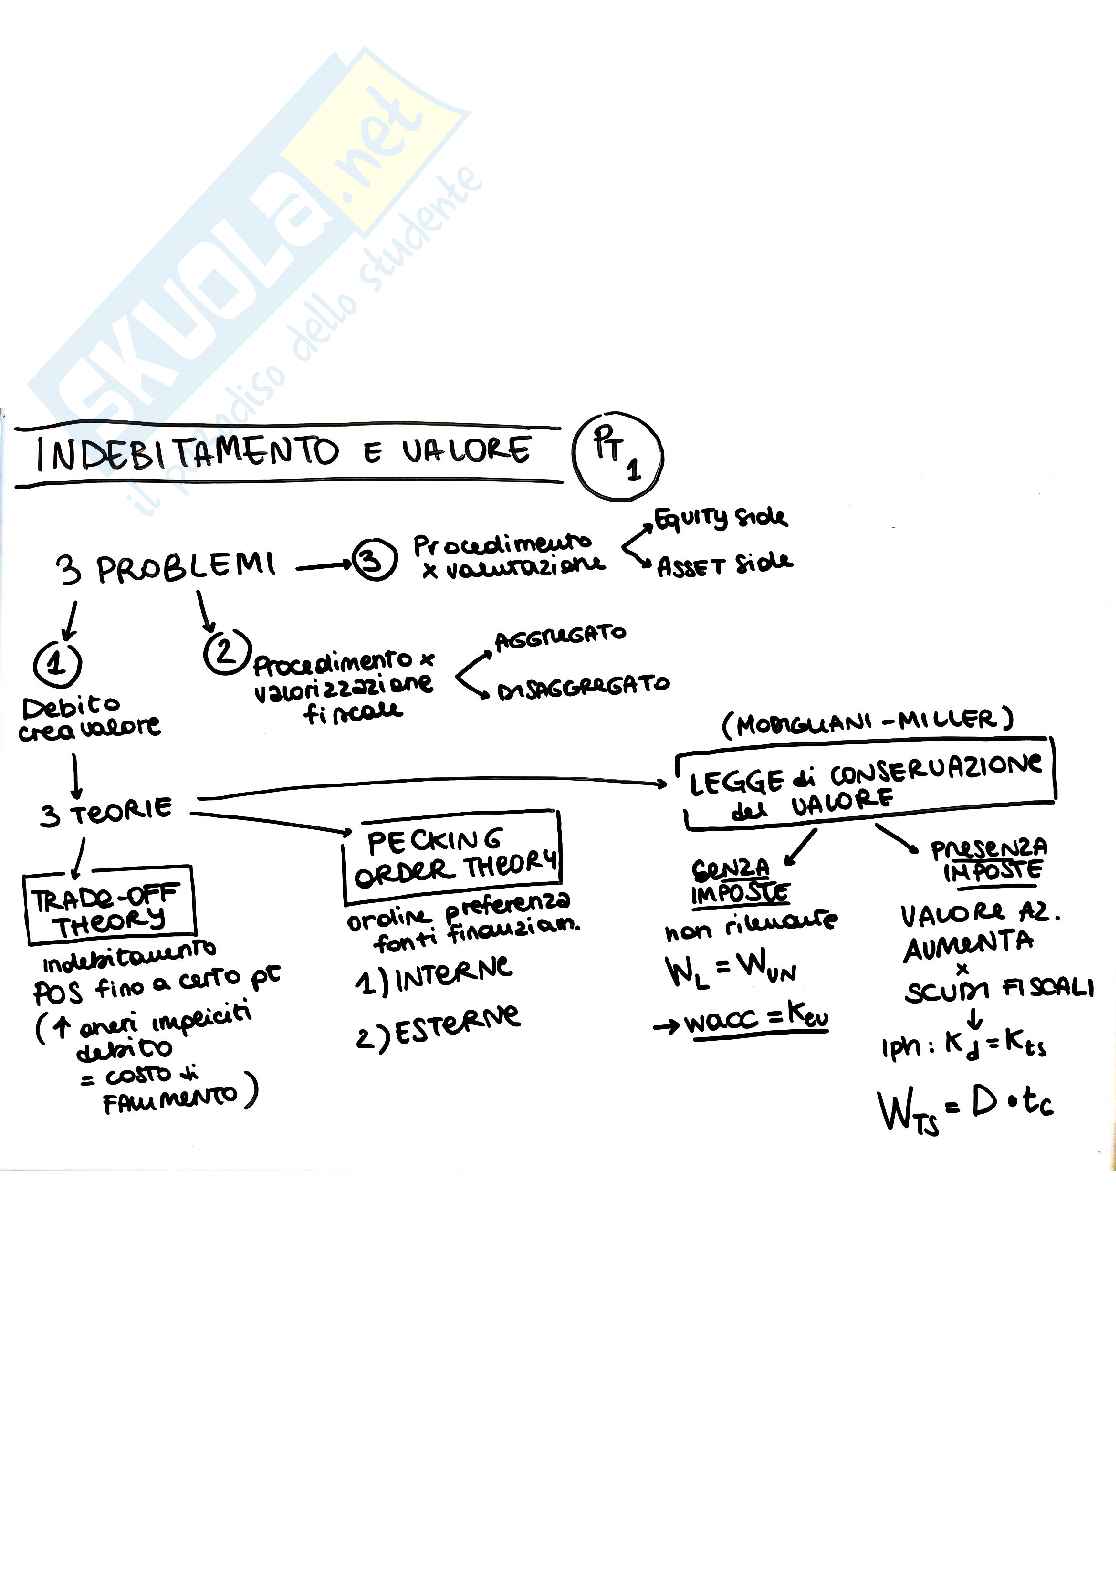 SKUOLA.net
il paradiso dello studente
INDEBITAMENTO E VALORE
PT 1
3 PROBLEMI
3 Procedimento
x valutazione
EQUITY side
ASSET side
1
Debito
crea valore
2 Procedimento x
valorizzazione
fiscale
AGGREGATO
DISAGGREGATO
3 TEORIE
TRADE-OFF
THEORY
indebitamento
POS fino a certo pt
(↑ oneri impliciti
debito
= COSTO di
FALLIMENTO)
PECKING
ORDER THEORY
ordine preferenza
fonti finanziam.
1) INTERNE
2) ESTERNE
(MODIGLIANI-MILLER)
LEGGE di CONSERVAZIONE
del VALORE
SENZA
IMPOSTE
non rilevante
W_L = W_UN
→ WACC = K_EU
PRESENZA
IMPOSTE
VALORE AZ.
AUMENTA
x
SCUDI FISCALI
Iph: K_d = K_ts
W_TS = D • t_c